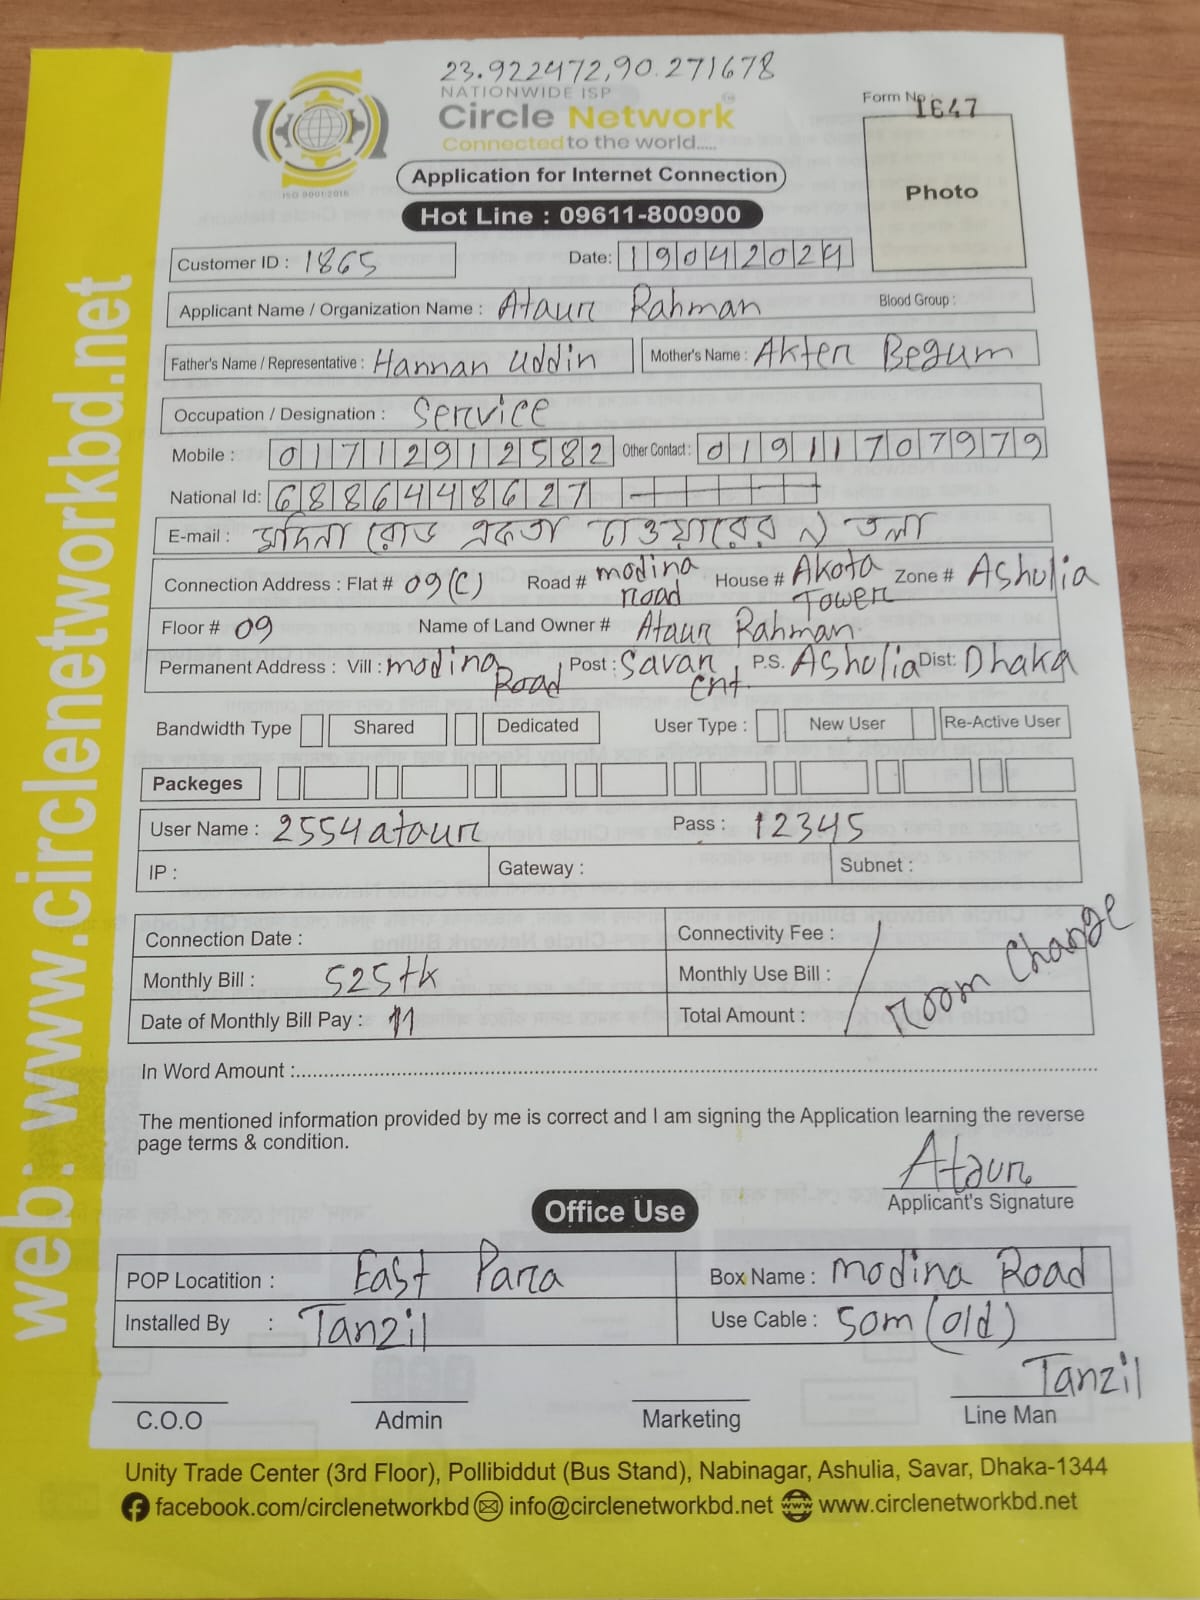 23.922472,90.271678
NATIONWIDE ISP
Circle Network
Connected to the world.....
ISO 9001:2015
Form No 1647
Photo
Application for Internet Connection
Hot Line : 09611-800900
Customer ID : 1865 Date: 19042024
Applicant Name / Organization Name : Ataur Rahman Blood Group :
Father's Name / Representative : Hannan Uddin Mother's Name : Akter Begum
Occupation / Designation : Service
Mobile : 01712912582 Other Contact : 01911707979
National Id: 6886448627
E-mail : মদিনা রোড একতা টাওয়ারের ৯ তলা
Connection Address : Flat # 09(C) Road # modina road House # Akota Tower Zone # Ashulia
Floor # 09 Name of Land Owner # Ataur Rahman
Permanent Address : Vill : modina Road Post : Savar Cnt. P.S. Ashulia Dist: Dhaka
Bandwidth Type Shared Dedicated User Type : New User Re-Active User
Packeges
User Name : 2554ataur Pass : 12345
IP : Gateway : Subnet :
Connection Date : Connectivity Fee :
Monthly Bill : 525tk Monthly Use Bill :
Date of Monthly Bill Pay : 11 Total Amount :
Room Change
In Word Amount :
The mentioned information provided by me is correct and I am signing the Application learning the reverse
page terms & condition.
Ataur
Applicant's Signature
Office Use
POP Locatition : East Para Box Name : modina Road
Installed By : Tanzil Use Cable : 50m (old)
Tanzil
C.O.O Admin Marketing Line Man
Unity Trade Center (3rd Floor), Pollibiddut (Bus Stand), Nabinagar, Ashulia, Savar, Dhaka-1344
facebook.com/circlenetworkbd info@circlenetworkbd.net www.circlenetworkbd.net
web: www.circlenetworkbd.net